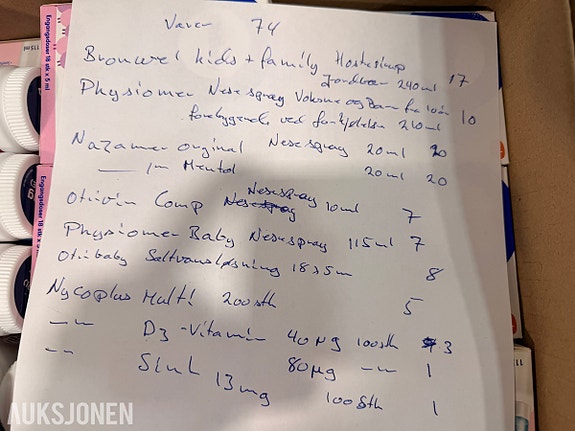 Varer 74
Bronwel kids + family Hostesirup
Jordbær 240ml 17
Physiomer Nesespray Voksne og Barn fra 6 år
forebyggende ved forkjølelse 210ml 10
Nazamer original Nesespray 20ml 20
—"— m Mentol 20ml 20
Otrivin Comp Nesespray 10ml 7
Physiomer Baby Nesespray 115ml 7
Otribaby Saltvannsløsning 18x5m 8
Nycoplus Multi 200stk 5
—"— D3-Vitamin 40µg 100stk 3
—"— 80µg —"— 1
Sink 13mg 100stk 1
Engangsdoser 18 stk x 5 ml
Engangsdoser 18 stk x 5
115 ml
AUKSJONEN